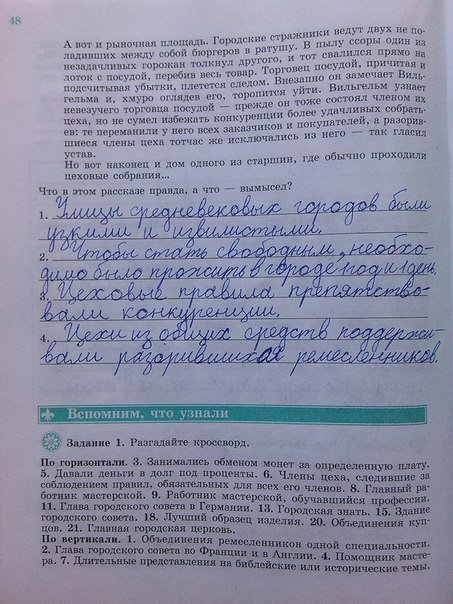 48
А вот и рыночная площадь. Городские стражники ведут двух не по-
ладивших между собой бюргеров в ратушу. В пылу ссоры один из
незадачливых горожан толкнул другого, и тот свалился прямо на
лоток с посудой, перебив весь товар. Торговец посудой, причитая и
подсчитывая убытки, плетется следом. Внезапно он замечает Виль-
гельма и, хмуро оглядев его, торопится уйти. Вильгельм узнает
невезучего торговца посудой — прежде он тоже состоял членом их
цеха, но не сумел избежать конкуренции более удачливых собрать-
ев: те переманили у него всех заказчиков и покупателей, а разорив-
шиеся члены цеха тотчас же исключались из него — так гласил
устав.
Но вот наконец и дом одного из старшин, где обычно проходили
цеховые собрания...
Что в этом рассказе правда, а что — вымысел?
1. Улицы средневековых городов были
узкими и извилистыми.
2. Чтобы стать свободным, необхо-
димо было прожить в городе 1 год и 1 день.
3. Цеховые правила препятство-
вали конкуренции.
4. Цехи из общих средств поддержи-
вали разорившихся ремесленников.
Вспомним, что узнали
Задание 1. Разгадайте кроссворд.
По горизонтали. 3. Занимались обменом монет за определенную плату.
5. Давали деньги в долг под проценты. 6. Члены цеха, следившие за
соблюдением правил, обязательных для всех его членов. 8. Главный ра-
ботник мастерской. 9. Работник мастерской, обучавшийся профессии.
11. Глава городского совета в Германии. 13. Городская знать. 15. Здание
городского совета. 18. Лучший образец изделия. 20. Объединения куп-
цов. 21. Главная городская церковь.
По вертикали. 1. Объединения ремесленников одной специальности.
2. Глава городского совета во Франции и в Англии. 4. Помощник масте-
ра. 7. Длительные представления на библейские или исторические темы.